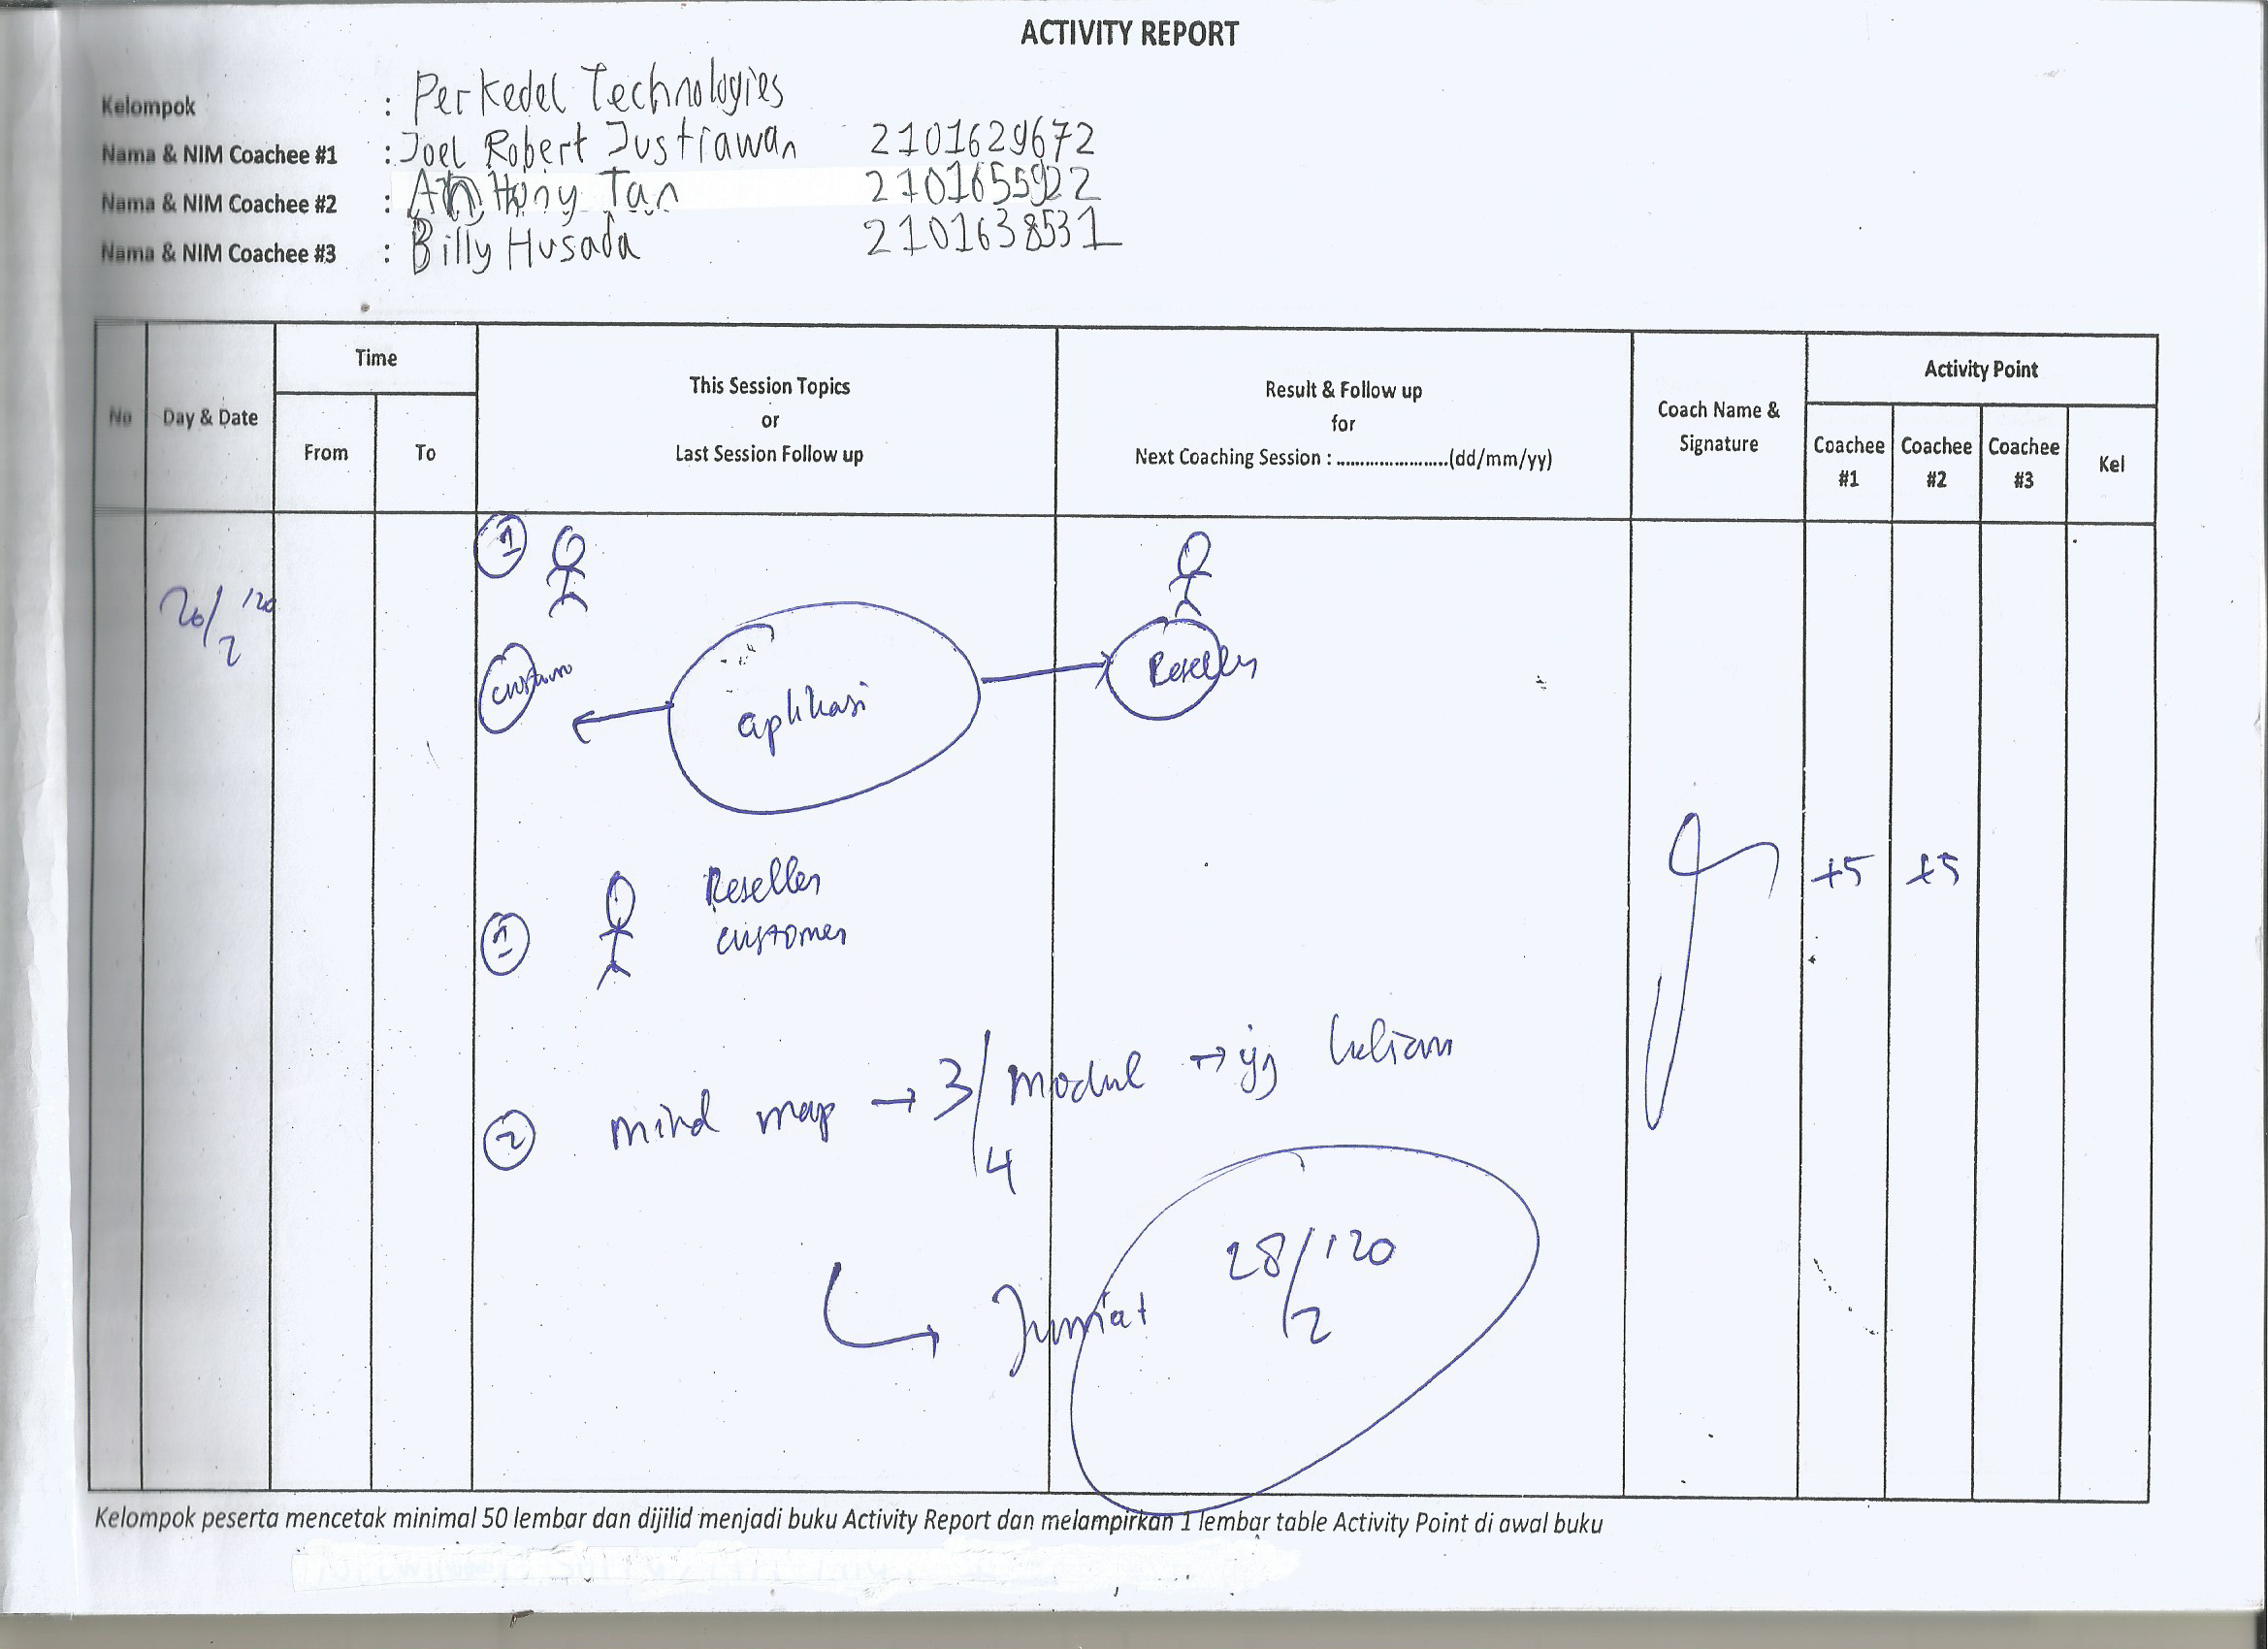 ACTIVITY REPORT
Kelompok : Perkedel Technologies
Nama & NIM Coachee #1 : Joel Robert Justiawan 2101629672
Nama & NIM Coachee #2 : Anthony Tan 2101655922
Nama & NIM Coachee #3 : Billy Husada 2101638531
No
Day & Date
Time
From
To
This Session Topics
or
Last Session Follow up
Result & Follow up
for
Next Coaching Session : ......................(dd/mm/yy)
Coach Name &
Signature
Activity Point
Coachee
#1
Coachee
#2
Coachee
#3
Kel
26/2 '20
1
aplikasi
Reseller
1
Reseller
customer
+5
+5
2 mind map → 3/4 modul → yg
Jumat 28/2 '20
Kelompok peserta mencetak minimal 50 lembar dan dijilid menjadi buku Activity Report dan melampirkan 1 lembar table Activity Point di awal buku